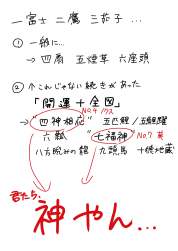 一富士 二鷹 三茄子 …
① 一般に…
→ 四扇 五煙草 六座頭
② ↑これじゃない続きがあった
「開運十全図」
No.4
→ "四神相応" 五
六瓢 "七福神" No.7
八方睨みの 九頭馬 十徳地蔵
君たち、
神やん…